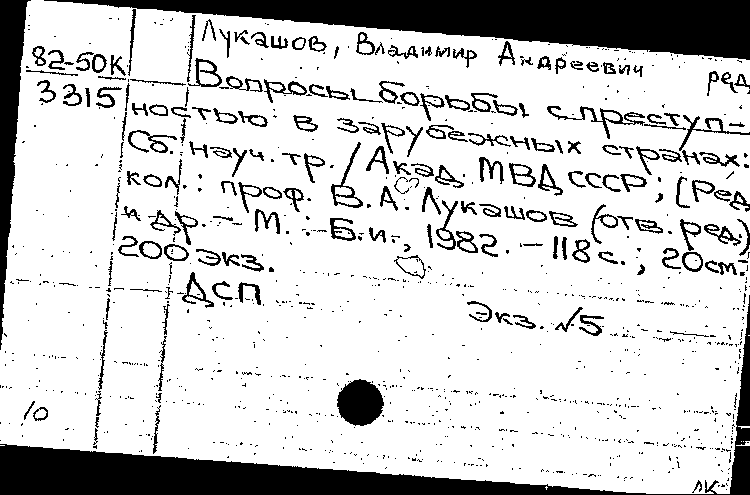 Лукашов, Владимир Андреевич ред.
82-50К
3315
Вопросы борьбы с преступ-
ностью в зарубежных странах:
Сб. науч. тр. / Акад. МВД СССР; [Ред.
кол.: проф. В.А. Лукашов (отв. ред.)
и др. – М.: Б.и., 1982. – 118 с.; 20 см.
200 экз.
ДСП
Экз. №5
10
ЛК